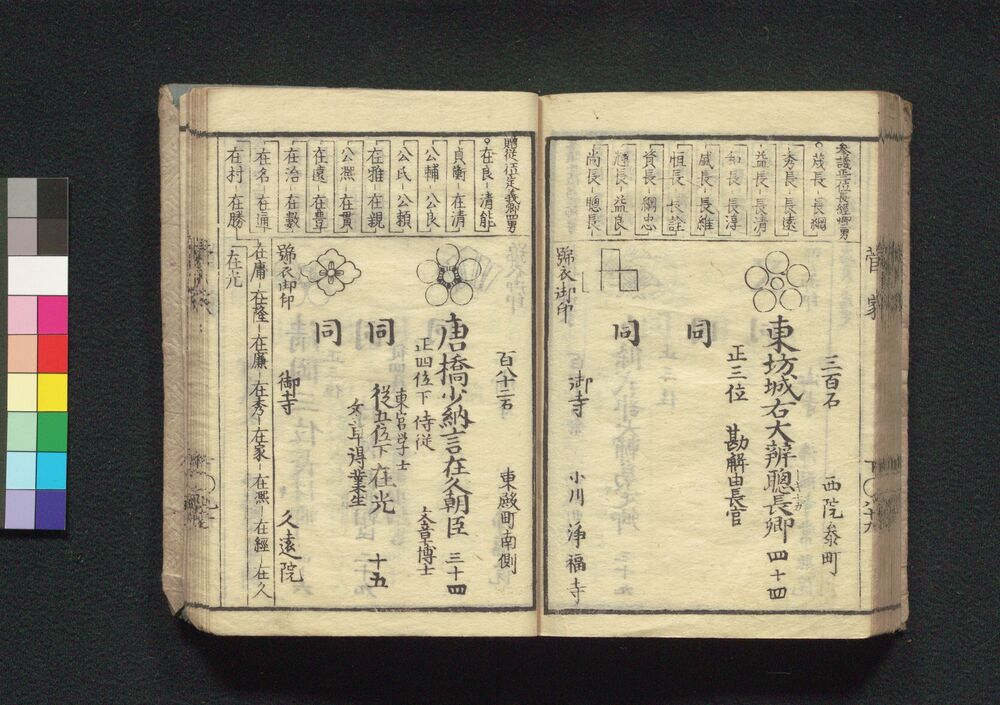 菅家
参議正二位長経卿男
茂長 長綱
秀長 長遠
益長 長清
和長 長淳
盛長 長維
恒長 長詮
資長 綱忠
輝長 益良
尚長 聰長
三百石 西院参町
東坊城右大辨聰長卿 四十四
正三位 勘解由長官
同
同
號衣御印
御寺 小川 浄福寺
贈従一位定義卿四男
在良 清能
貞衡 在清
公輔 公良
公氏 公頼
在雅 在親
公凞 在貫
在遠 在豊
在治 在數
在名 在通
在村 在勝
百八十二石 東殿町南側
唐橋少納言在久朝臣 三十四
正四位下 侍従 文章博士
東宮学士
同 従五位下 在光 十五
文章得業生
同
號衣御印
御寺 久遠院
在庸 在隆 在廉 在秀 在家 在凞 在經 在久
在光